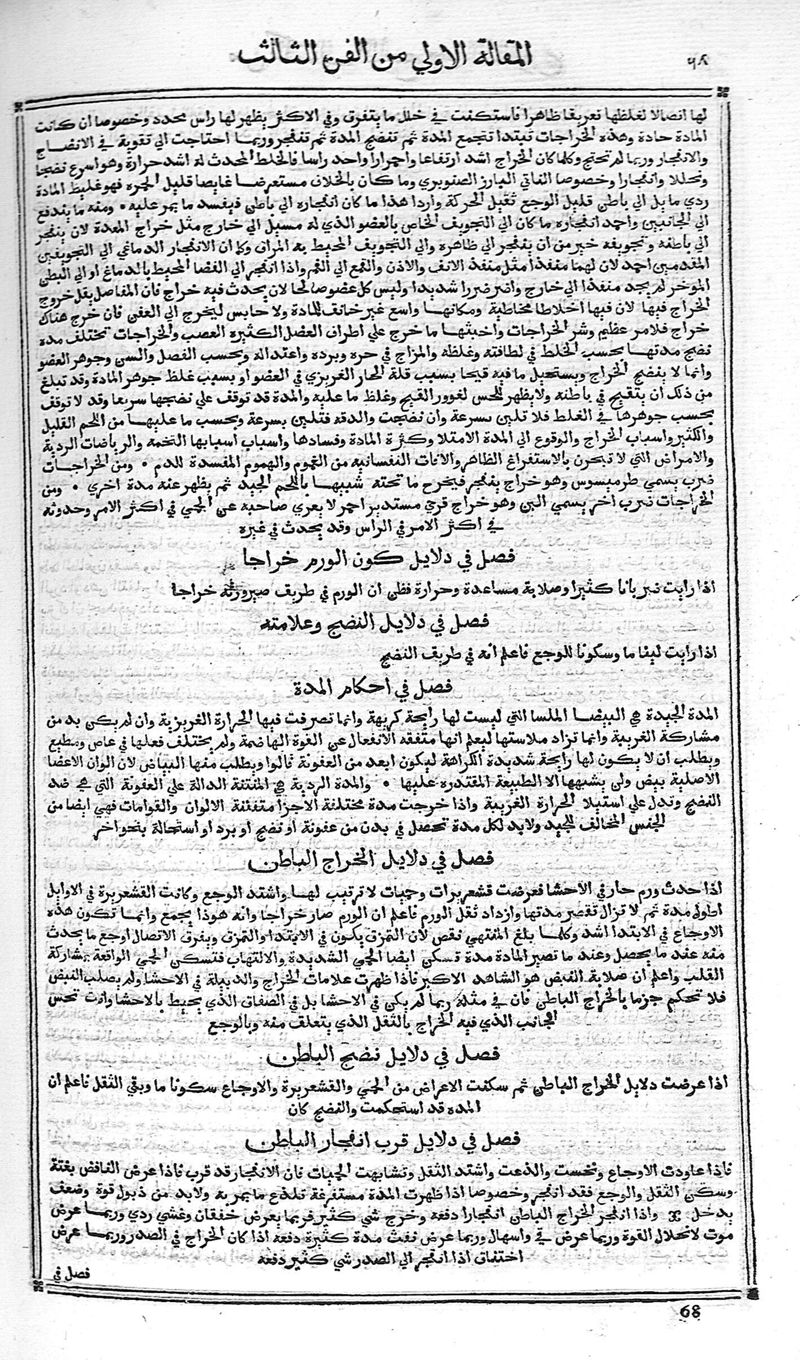 ٥٨ المقالة الاولي من الفن الثالث
لها اتصالا لغلظها تعريقا ظاهرا فاستكنت في خلل ما يتفرق وفي الاكثر يظهر لها راس محدد وخصوصا ان كانت
المادة حادة وهذه الخراجات تبتدا تجمع المدة ثم تنضج المدة ثم تنفجر وربما احتاجت الي تقوية في الانضاج
والانفجار وربما لم تحتج وكلما كان الخراج اشد ارتفاعا واحمرارا واحد راسا فالخلط المحدث له اشد حرارة وهو اسرع نضجا
وتحللا وانفجارا وخصوصا الناتي البارز الصنوبري وما كان بالخلاف مستعرضا غايصا قليل الحمرة فهو غليظ المادة
ردي مايل الي باطن قليل الوجع ثقيل الحركة واردا هذا ما كان انفجاره الي باطن فيفسد ما يمر عليه • ومنه ما يندفع
الي الجانبين واحمد انفجاره ما كان الي التجويف الخاص بالعضو الذي له مسيل الي خارج مثل خراج المعدة لان ينفجر
الي باطنه وتجويفه خير من ان ينفجر الي ظاهره والي التجويف المحيط به المراق وكما ان الانفجار الدماغي الي التجويفين
المقدمين احمد لان لهما منفذا مثل منفذ الانف والاذن والقمع الي الفم واذا انفجر الي الفضا المحيط بالدماغ او الي البطن
الموخر لم يجد منفذا الي خارج واضر ضررا شديدا وليس كل عضو صالحا لان يحدث فيه خراج فان المفاصل يقل خروج
الخراج فيها لان فيها اخلاطا مخاطية ومكانها واسع غير خانق للمادة ولا حابس ليخرج الي العفن فان خرج هناك
خراج فلامر عظيم وشر الخراجات واخبثها ما خرج علي اطراف العضل الكثيرة العصب والخراجات تختلف مدة
نضج مدتها بحسب الخلط في لطافته وغلظه والمزاج في حره وبرده واعتداله وبحسب الفصل والسن وجوهر العضو
وانما لا ينضج الخراج ويستحيل ما فيه قيحا بسبب قلة الحار الغريزي في العضو او بسبب غلظ جوهر المادة وقد تبلغ
من ذلك ان يتقيح في باطنه ولا يظهر للحس لغوور القيح وغلظ ما عليه والمدة قد توقف علي نضجها سريعا وقد لا توقف
بحسب جوهرها في الغلط فلا تلين بسرعة وان نضجت والدقه فتلين بسرعة وبحسب ما عليها من اللحم القليل
والكثير واسباب الخراج والوقوع الي المدة الامتلا وكثرة المادة وفسادها واسباب اسبابها التخمة والرياضات الردية
والامراض التي لا تبحرن بالاستفراغ الظاهر والافات النفسانيه من الغموم والهموم المفسدة للدم • ومن الخراجات
ضرب يسمي طرميسوس وهو خراج ينفجر فيخرج ما تحته شبيها باللحم الجيد ثم يظهر عنه مدة اخري • ومن
الخراجات ضرب اخر يسمي البن وهو خراج قرحي مستدير احمر لا يعري صاحبه عن الحمي في اكثر الامر وحدوثه
في اكثر الامر في الراس وقد يحدث في غيره
فصل في دلايل كون الورم خراجا
اذا رايت ضربانا كثيرا وصلابة مساعدة وحرارة فظن ان الورم في طريف صيرورته خراجا
فصل في دلايل النضج وعلامته
اذا رايت لينا ما وسكونا للوجع فاعلم انه في طريف النضج
فصل في احكام المدة
المدة الجيدة هي البيضا الملسا التي ليست لها رايحة كريهة وانما تصرفت فيها الحرارة الغريزية وان لم يكن بد من
مشاركة الغريبة وانما تراد ملاستها ليعلم انها متفقه الانفعال عن القوة الهاضمة ولم يختلف فعلها في عاص ومطيع
ويطلب ان لا يكون لها رايحة شديدة الكراهة ليكون ابعد من العفونة قالوا ويطلب منها البياض لان الوان الاعضا
الاصلية بيض ولن يشبهها الا الطبيعة المقتدره عليها • والمدة الردية هي المنتنة الدالة علي العفونة التي هي ضد
النضج وتدل علي استيلا الحرارة الغريبة واذا خرجت مدة مختلفة الاجزا متفننة الالوان والقوامات فهي ايضا من
الجنس المخالف للجيد ولابد لكل مدة تحصل في بدن من عفونة او نضج او برد او استحالة بنحو اخر
فصل في دلايل الخراج الباطن
اذا حدث ورم حار في الاحشا فعرضت قشعريرات وحميات لا ترتيب لها واشتد الوجع وكانت القشعريرة في الاوايل
اطول مدة ثم لا تزال تقصر مدتها وازداد ثقل الورم فاعلم ان الورم صار خراجا وانه هوذا يجمع وانما تكون هذه
الاوجاع في الابتدا اشد وكلما بلغ المنتهي نقص لان التمزق يكون في الابتدا والتمزق ويفرق الاتصال اوجع ما يحدث
منه عند ما يحصل وعند ما تصير المادة مدة تسكن ايضا الحمي الشديدة والالتهاب فتسكن الحمي الواقعة بمشاركة
القلب واعلم ان صلابة النبض هو الشاهد الاكبر فاذا ظهرت علامات الخراج والدبيلة في الاحشا ولم يصلب النبض
فلا تحكم جزما بالخراج الباطن فان في مثله ربما لم يكن في الاحشا بل في الصفاق الذي يحيط بالاحشا وانت تحس
الجانب الذي فيه الخراج بالثقل الذي يتعلف منه وبالوجع
فصل في دلايل نضج الباطن
اذا عرضت دلايل الخراج الباطن ثم سكنت الاعراض من الحمي والقشعريرة والاوجاع سكونا ما وبقي الثقل فاعلم ان
المده قد استحكمت والنضج كان
فصل في دلايل قرب انفجار الباطن
فاذا عاودت الاوجاع ونخست والذعت واشتد الثقل وتشابهت الحميات فان الانفجار قد قرب فاذا عرض النافض بغتة
وسكن الثقل والوجع فقد انفجر وخصوصا اذا ظهرت المدة مستفرغة تلذع ما يمر به ولابد من ذبول قوة وضعف
يدخل واذا انفجر الخراج الباطن انفجارا دفعه وخرج شي كثير فربما يعرض خفقان وغشي ردي وربما عرض
موت لانحلال القوة وربما عرض قي واسهال وربما عرض نفث مدة كثيرة دفعه اذا كان الخراج في الصدر وربما عرض
اختناق اذا انفجر الي الصدر شي كثير دفعه
فصل في
68